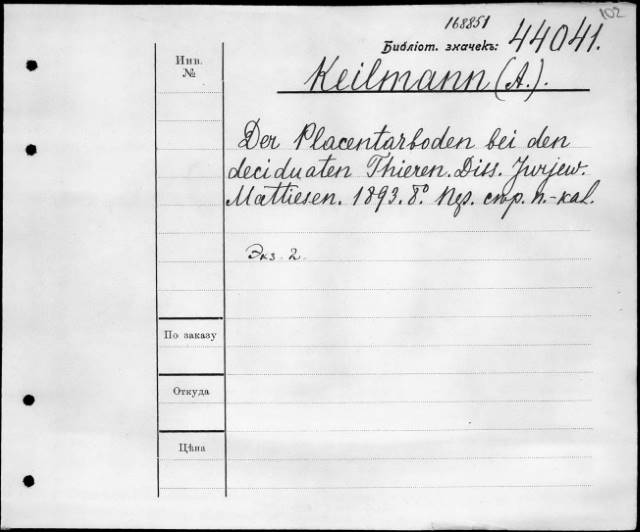 102
168851
Библіот. значекъ: 44041.
Инв.
№
Keilmann (A.).
Der Placentarboden bei den
deciduaten Thieren. Diss. Jurjew.
Mattiesen. 1893. 8° стр. n.-kal.
Экз. 2.
По заказу
Откуда
Цѣна